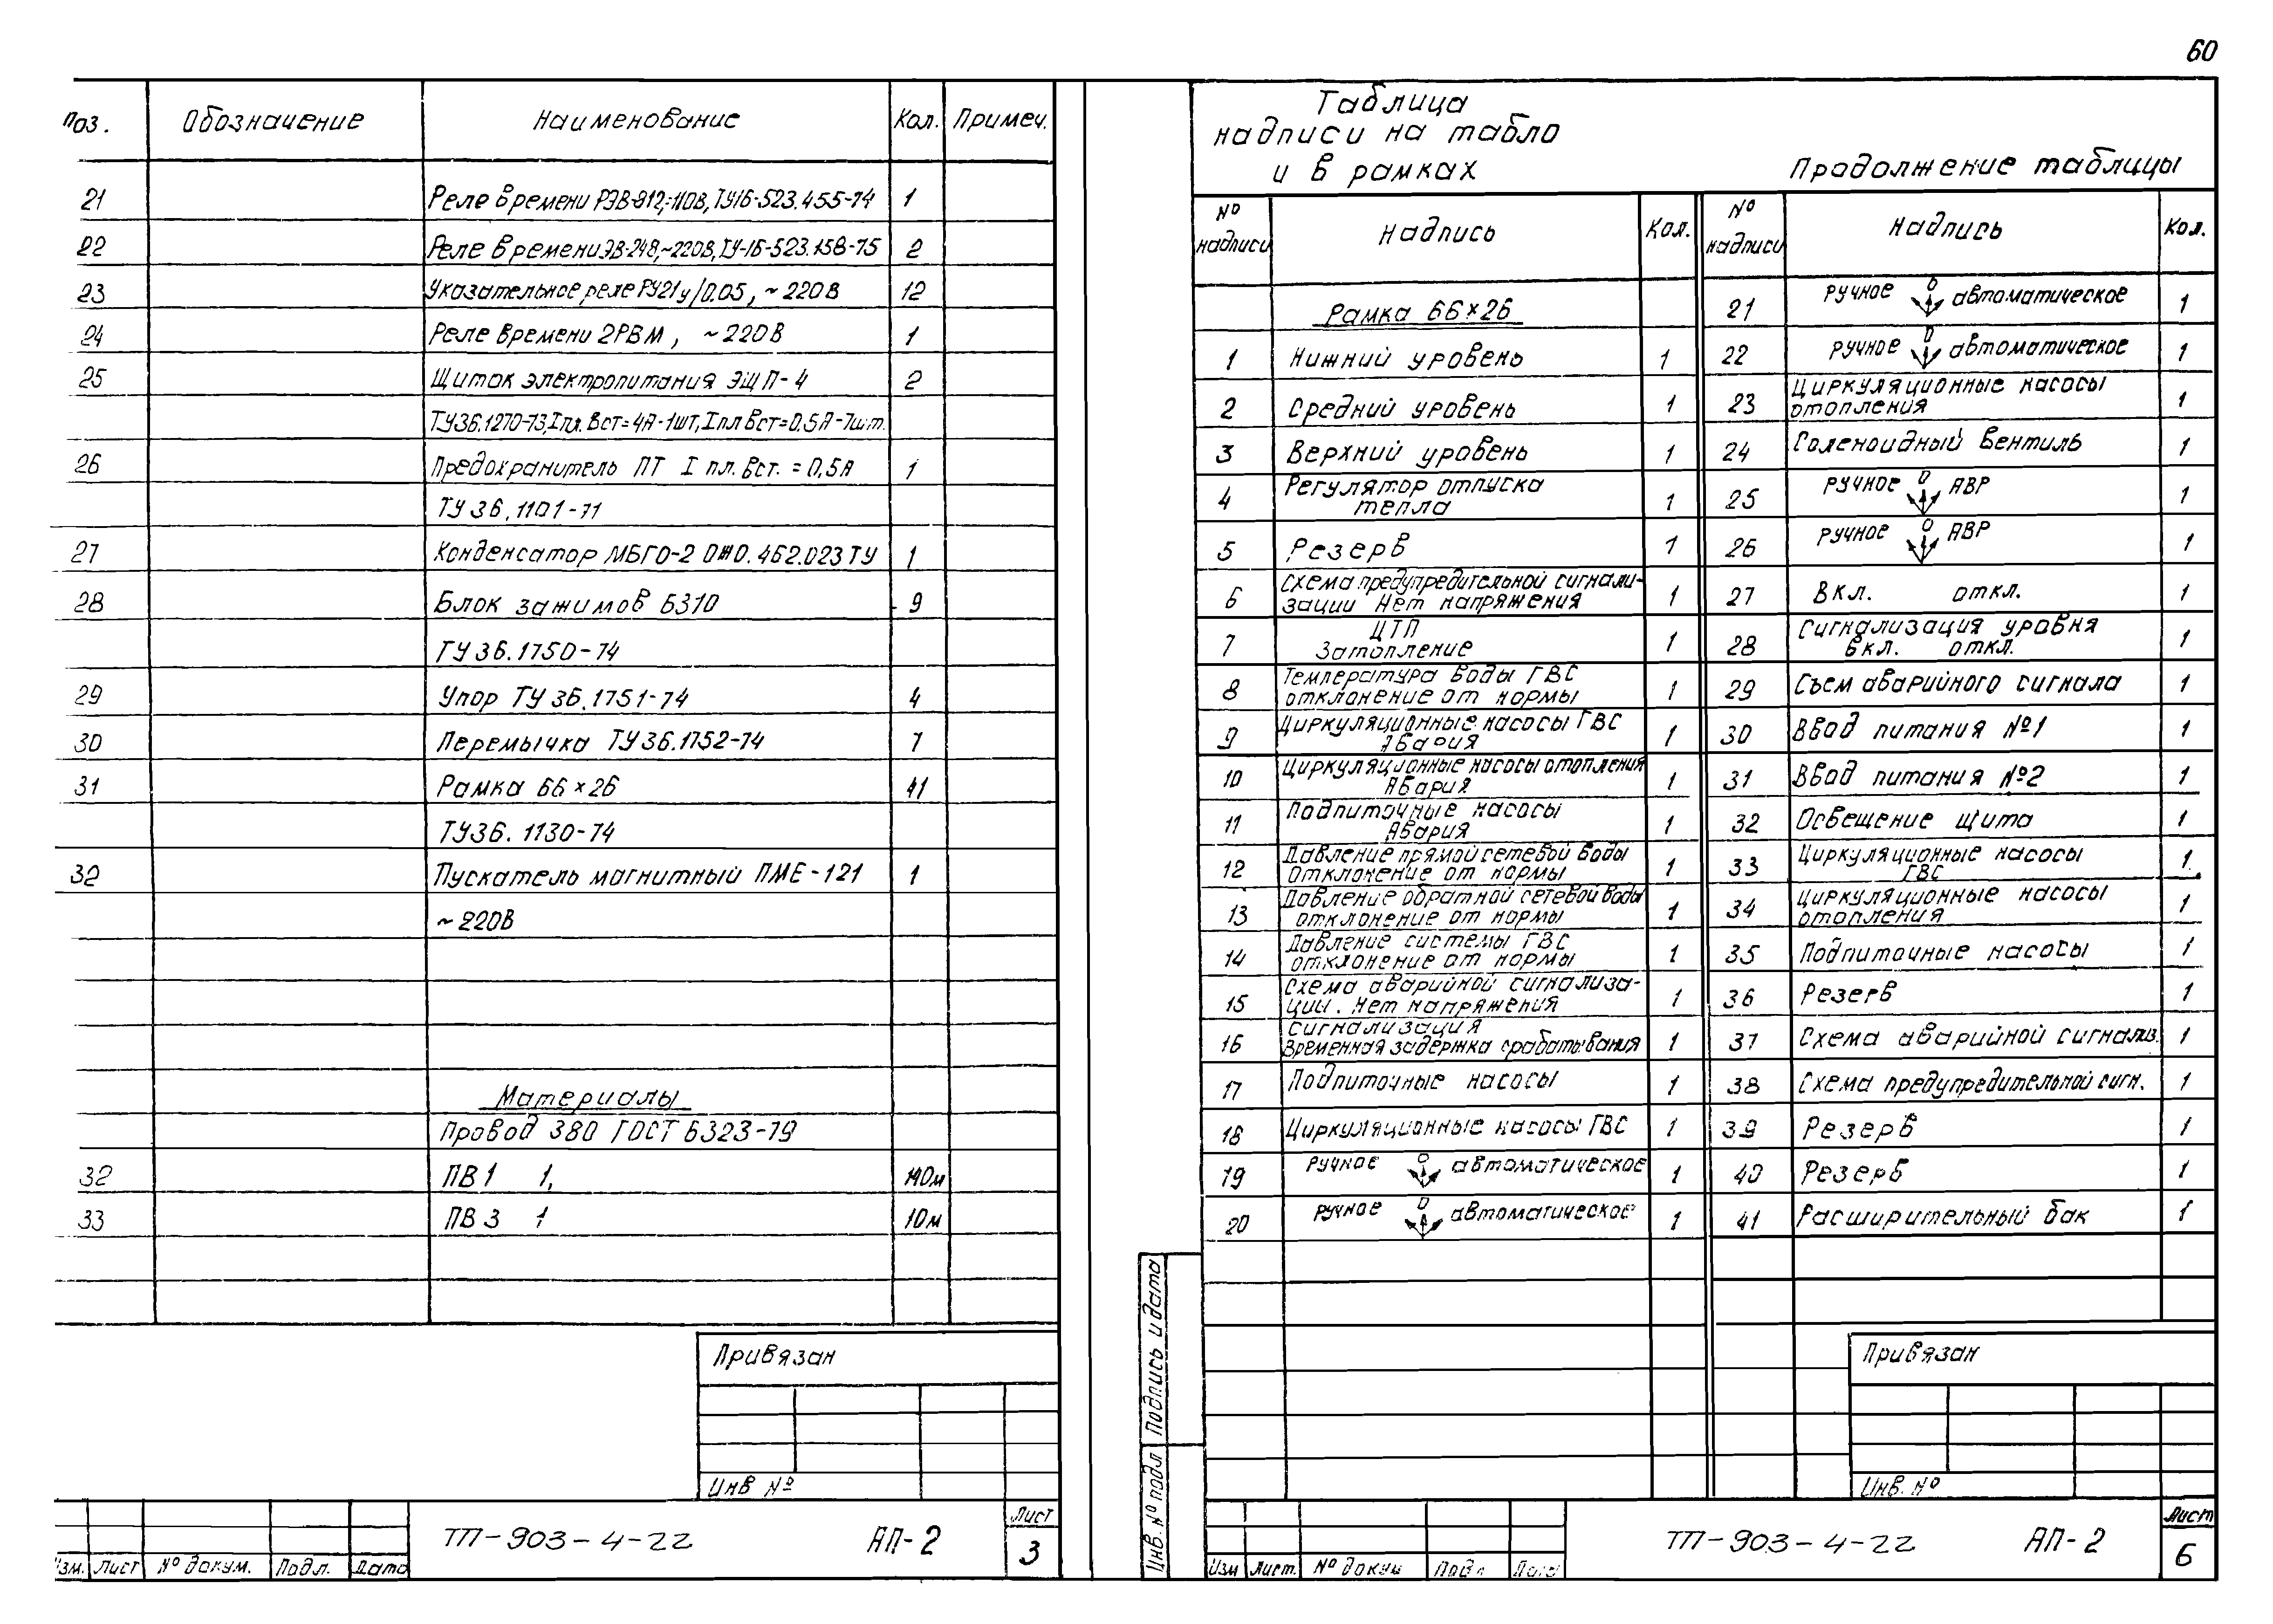 60
Поз. Обозначение Наименование Кол. Примеч.
21 Реле времени РЭВ-812,=110В, ТУ16-523.455-74 1
22 Реле времени ЭВ-248,~220В, ТУ-16-523.158-75 2
23 Указательное реле РУ21у/0.05, ~220В 12
24 Реле времени 2РВМ, ~220В 1
25 Щиток электропитания ЭЩП-4 2
ТУ36.1270-73, Iпл. Вст=4А-1шт, Iпл Вст=0.5А-7шт.
26 Предохранитель ПТ I пл. вст. = 0,5А 1
ТУ 36.1101-71
27 Конденсатор МБГО-2 ОЖО.462.023ТУ 1
28 Блок зажимов Б310 9
ТУ 36.1750-74
29 Упор ТУ 36.1751-74 4
30 Перемычка ТУ 36.1752-74 7
31 Рамка 66×26 41
ТУ36.1130-74
32 Пускатель магнитный ПМЕ-121 1
~220В
Материалы
Провод 380 ГОСТ 6323-79
32 ПВ1 1, 140м
33 ПВ3 1 10м
Привязан
Инв №
Изм. Лист № докум. Подл. Дата
ТП-903-4-22 АП-2
Лист
3
Таблица
надписи на табло
и в рамках
№ надписи Надпись Кол.
Рамка 66×26
1 Нижний уровень 1
2 Средний уровень 1
3 Верхний уровень 1
4 Регулятор отпуска
тепла 1
5 Резерв 1
6 Схема предупредительной сигнали-
зации Нет напряжения 1
7 ЦТП
Затопление 1
8 Температура воды ГВС
отклонение от нормы 1
9 Циркуляционные насосы ГВС
Авария 1
10 Циркуляционные насосы отопления
Авария 1
11 Подпиточные насосы
Авария 1
12 Давление прямой сетевой воды
Отклонение от нормы 1
13 Давление обратной сетевой воды
отклонение от нормы 1
14 Давление системы ГВС
отклонение от нормы 1
15 Схема аварийной сигнализа-
ции. Нет напряжения 1
16 Сигнализация
Временная задержка срабатывания 1
17 Подпиточные насосы 1
18 Циркуляционные насосы ГВС 1
19 ручное 0 автоматическое 1
20 ручное 0 автоматическое 1
Продолжение таблицы
№ надписи Надпись Кол.
21 ручное 0 автоматическое 1
22 ручное 0 автоматическое 1
23 Циркуляционные насосы
отопления 1
24 Соленоидный вентиль 1
25 ручное 0 АВР 1
26 ручное 0 АВР 1
27 Вкл. откл. 1
28 Сигнализация уровня
вкл. откл. 1
29 Съем аварийного сигнала 1
30 Ввод питания №1 1
31 Ввод питания №2 1
32 Освещение щита 1
33 Циркуляционные насосы
ГВС 1
34 Циркуляционные насосы
отопления 1
35 Подпиточные насосы 1
36 Резерв 1
37 Схема аварийной сигнализ. 1
38 Схема предупредительной сигн. 1
39 Резерв 1
40 Резерв 1
41 Расширительный бак 1
Привязан
Инв. №
Инв. № подл Подпись и дата
Изм Лист. № докум Подп Дата
ТП-903-4-22 АП-2
Лист
6